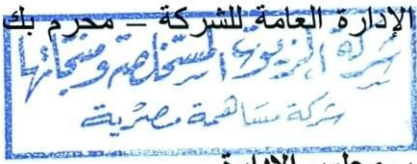 الإدارة العامة للشركة – محرم بك
شركة الزيوت المستخلصة ومنتجاتها
شركة مساهمة مصرية
مجلس الإدارة